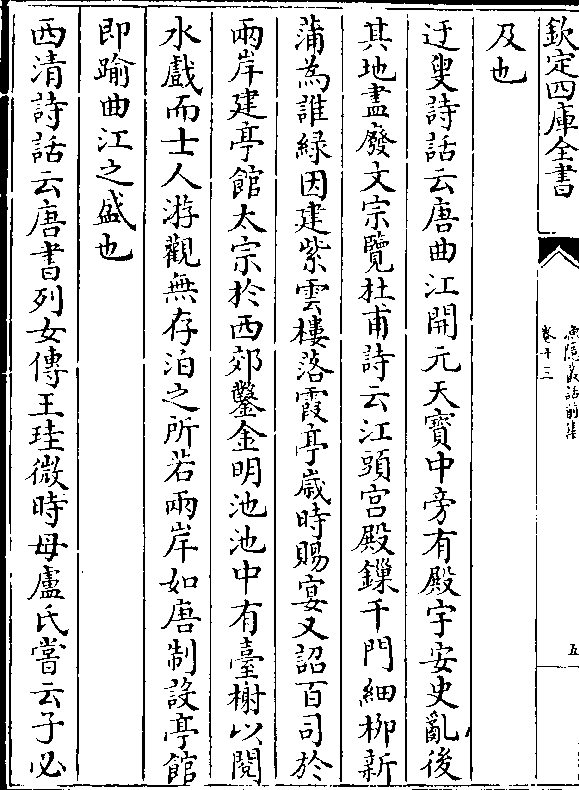 欽定四庫全書
漁隱叢話前集
卷十三
五
及也
迂叟詩話云唐曲江開元天寶中旁有殿宇安史亂後
其地盡廢文宗覽杜甫詩云江頭宫殿鏁千門細柳新
蒲為誰緑因建紫雲樓落霞亭嵗時賜宴又詔百司於
兩岸建亭館太宗於西郊鑿金明池池中有臺榭以閱
水戲而士人游觀無存泊之所若兩岸如唐制設亭館
即踰曲江之盛也
西清詩話云唐書列女傳王珪微時母盧氏嘗云子必